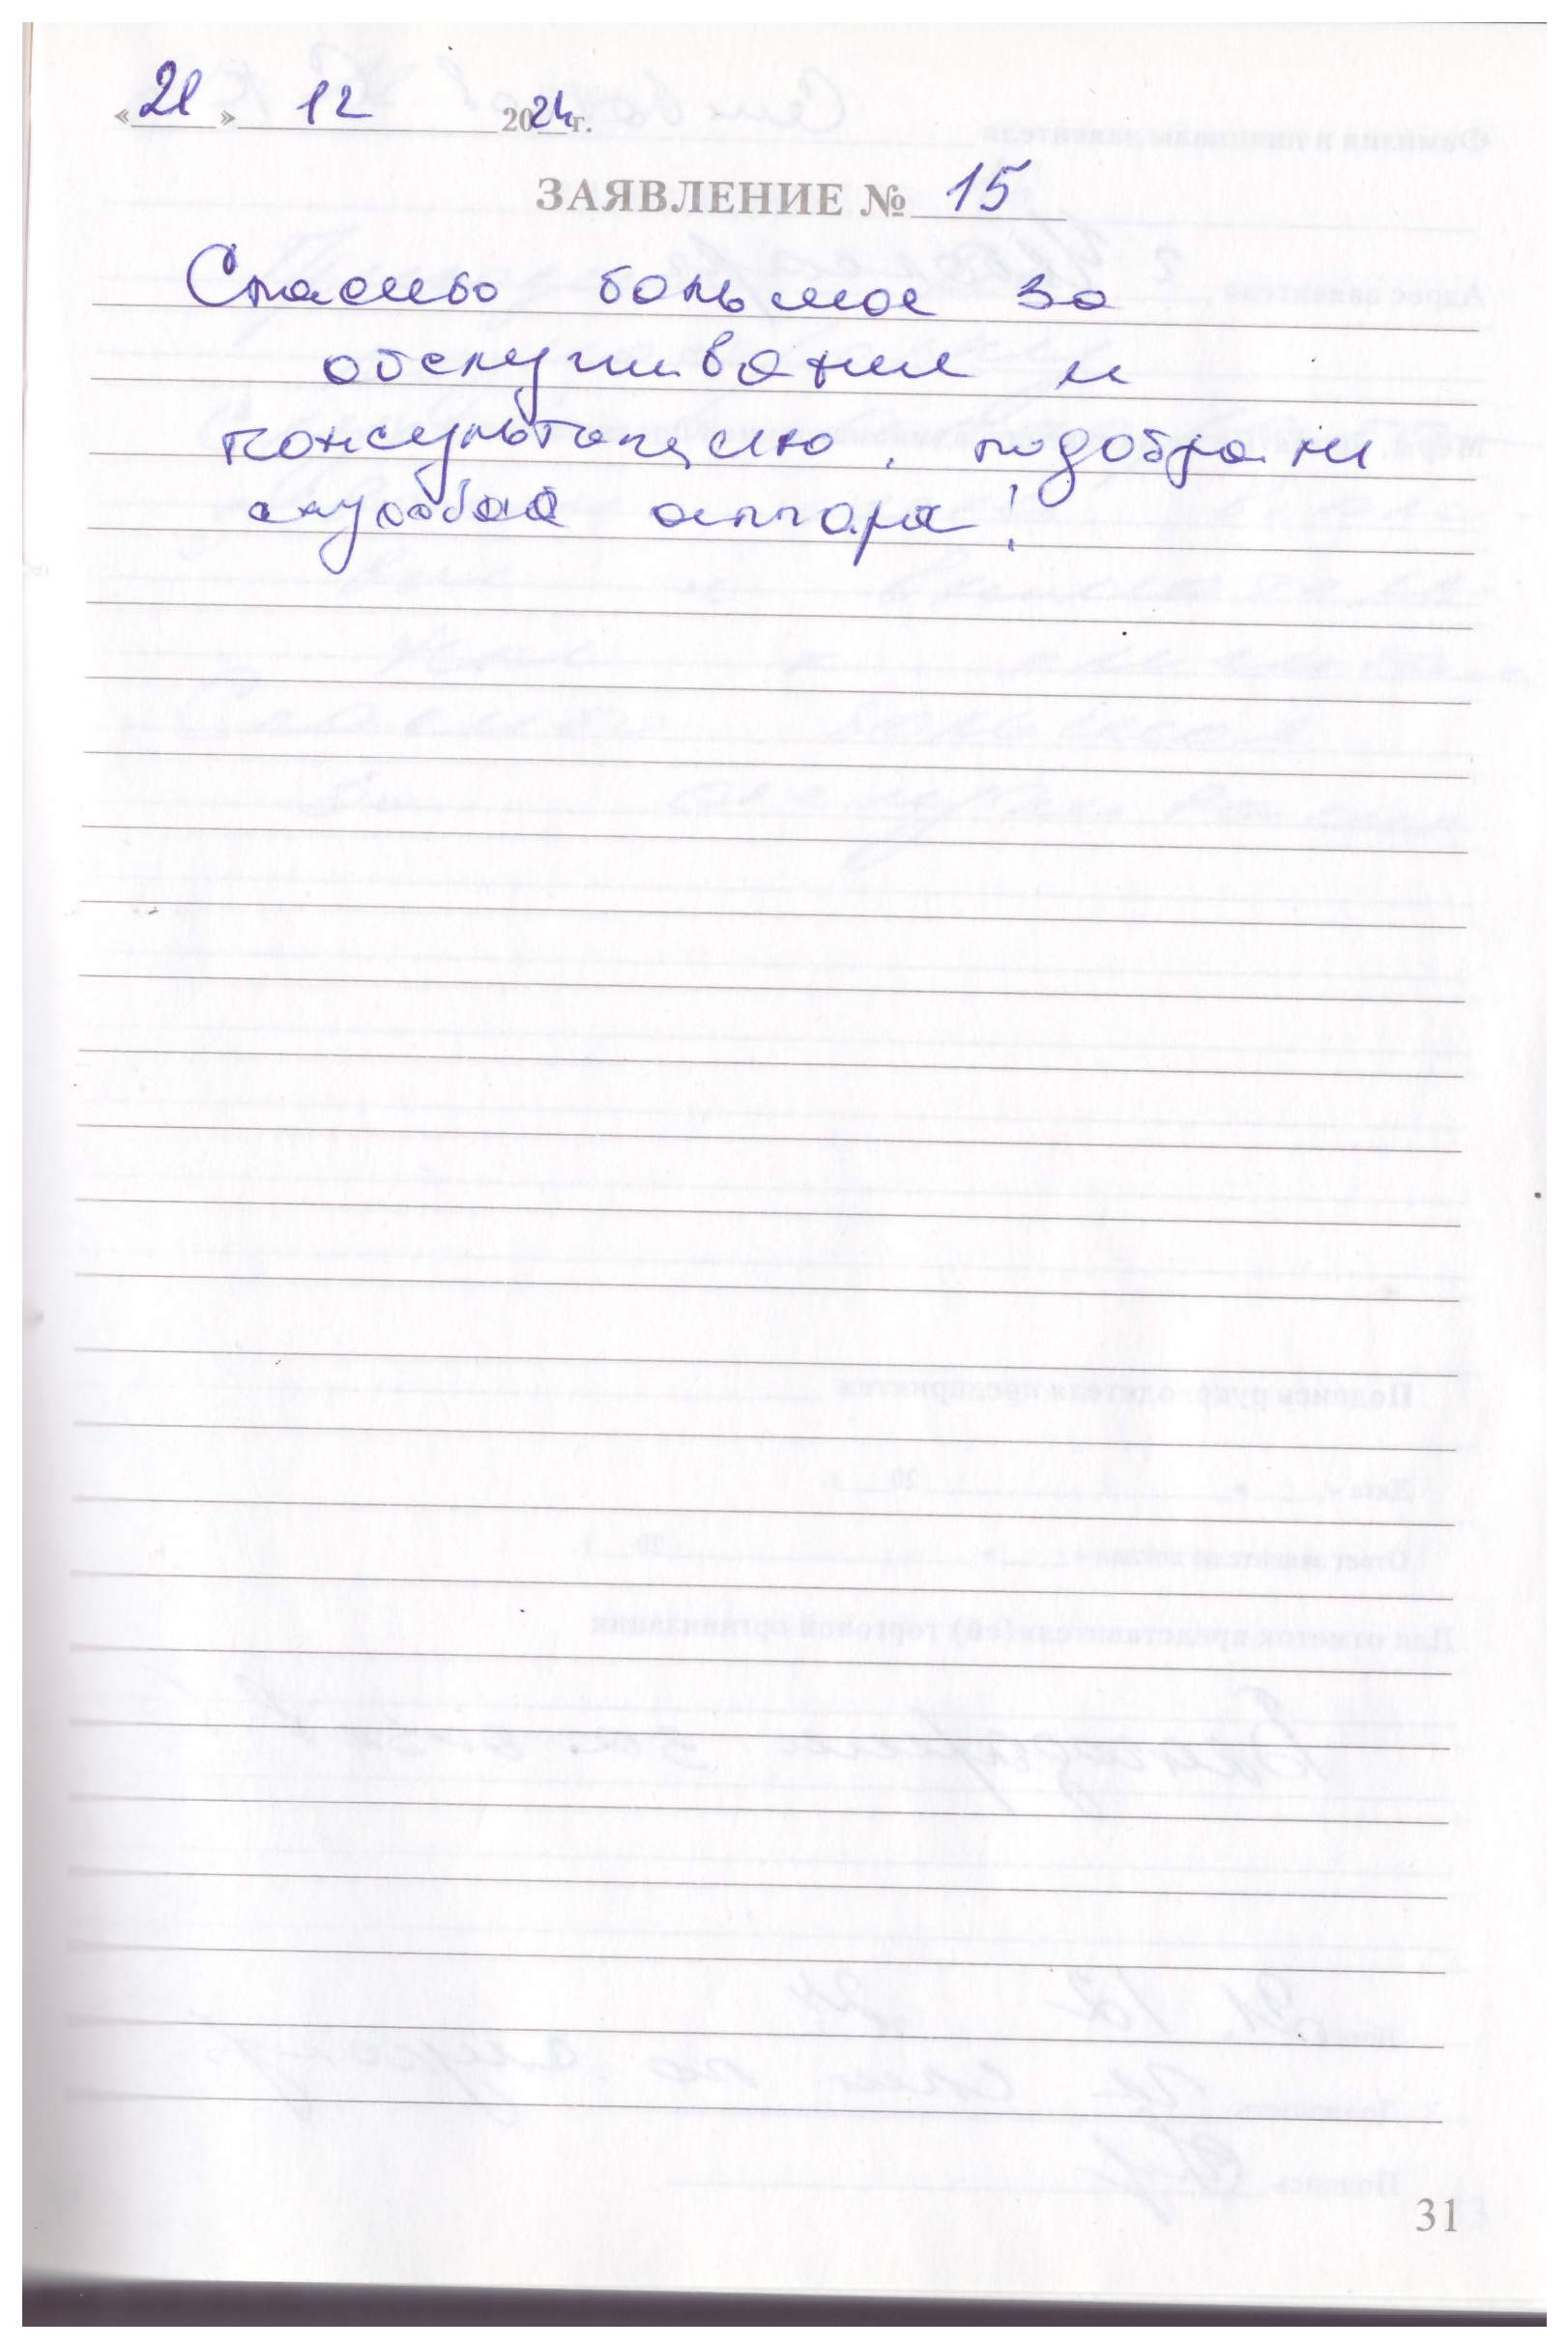 «21» 12 2024г.
ЗАЯВЛЕНИЕ № 15
Спасибо большое за
обслуживание и
консультацию, подобрани
слуховой аппара!
31